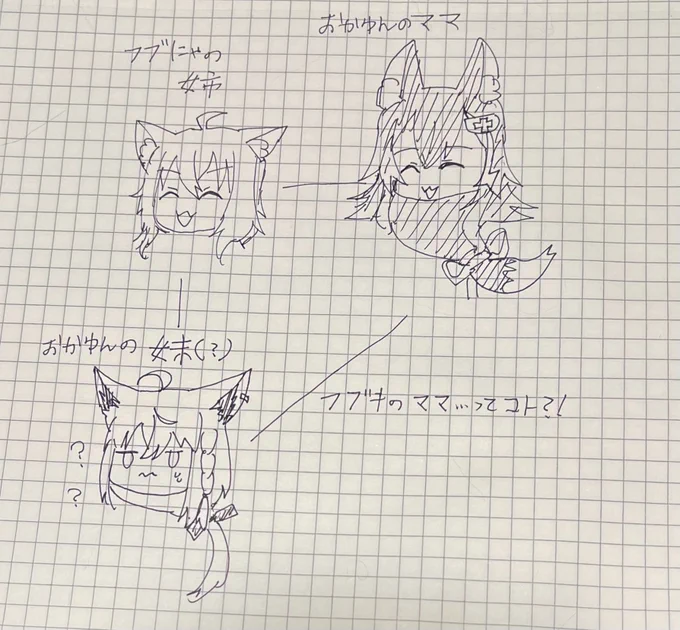 おかゆんのママ
フブにゃの
姉
おかゆんの 妹(?)
フブキのママ…ってコト?!
?
?